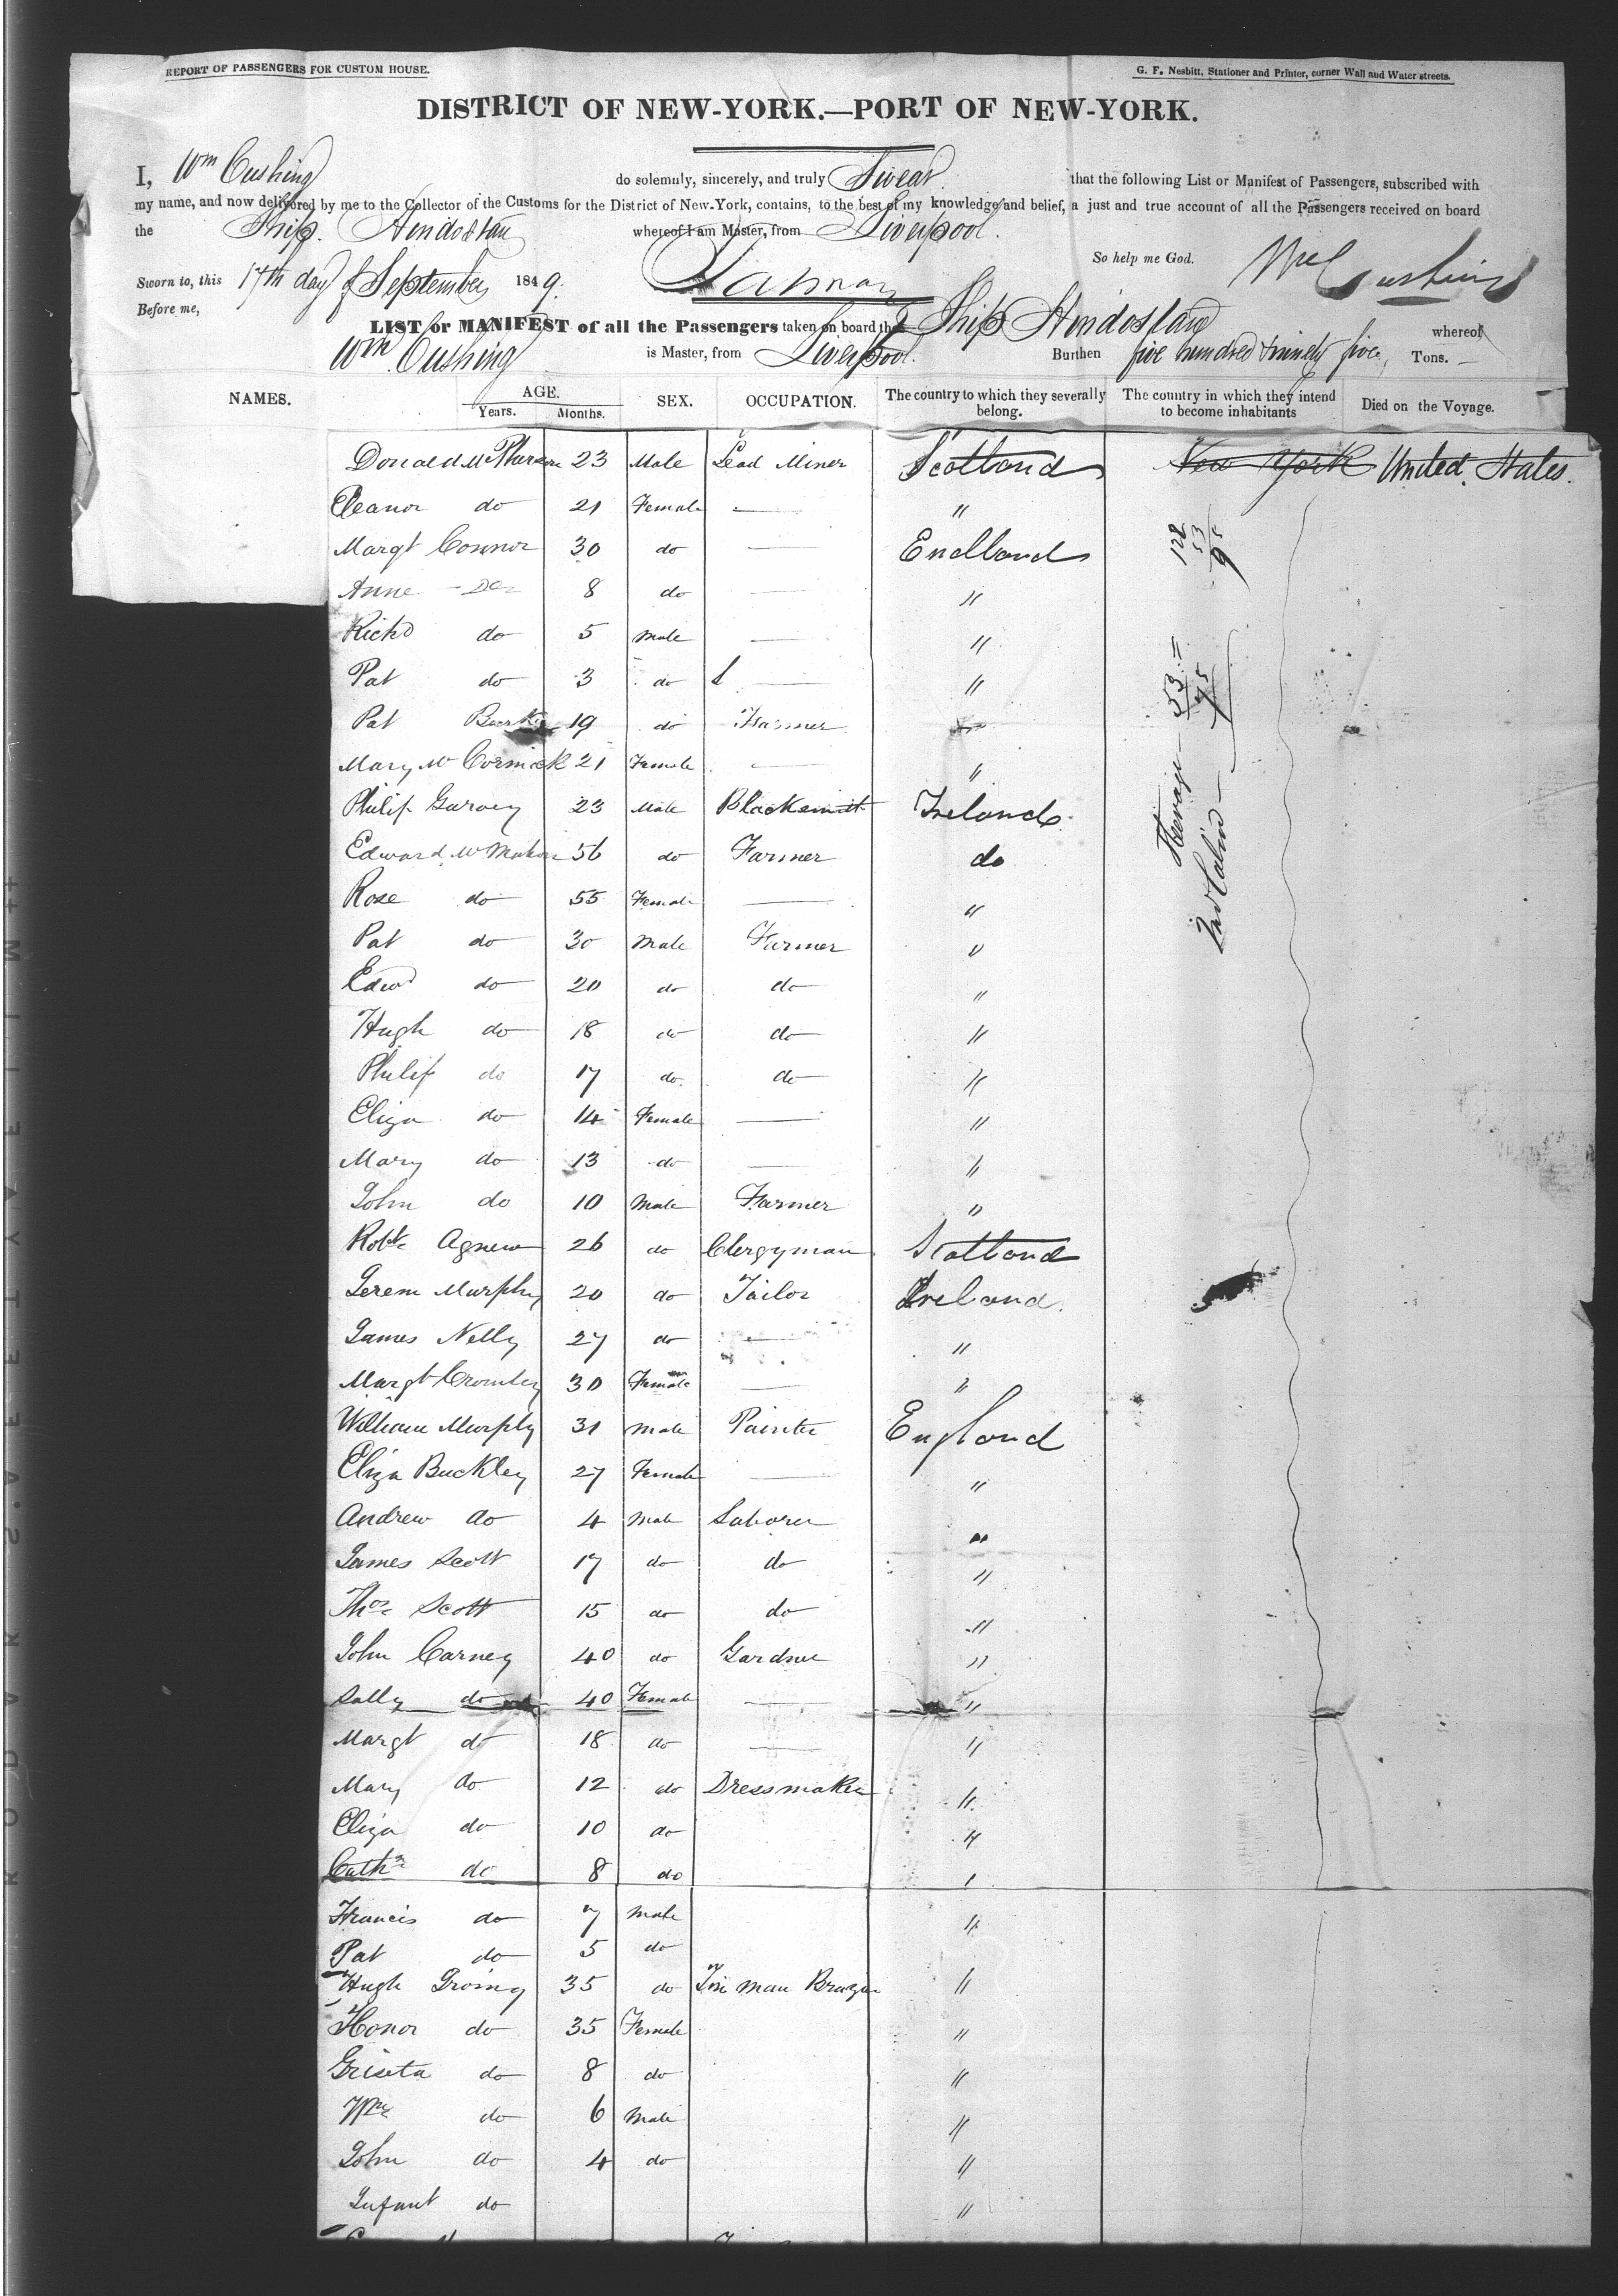 REPORT OF PASSENGERS FOR CUSTOM HOUSE.
G. F. Nesbitt, Stationer and Printer, corner Wall and Water streets.
DISTRICT OF NEW-YORK.—PORT OF NEW-YORK.
I, Wm Cushing do solemnly, sincerely, and truly Swear that the following List or Manifest of Passengers, subscribed with
my name, and now delivered by me to the Collector of the Customs for the District of New-York, contains, to the best of my knowledge and belief, a just and true account of all the Passengers received on board
the Ship Hindostan whereof I am Master, from Liverpool.
So help me God. Wm Cushing
Sworn to, this 17th day of September 1849.
Before me,
LIST or MANIFEST of all the Passengers taken on board the Ship Hindostan whereof
Wm Cushing is Master, from Liverpool. Burthen five hundred & ninety five Tons.
NAMES. AGE. Years. Months. SEX. OCCUPATION. The country to which they severally belong. The country in which they intend to become inhabitants Died on the Voyage.
Donald McPherson 23 Male Lead Miner Scotland New York United States.
Eleanor do 21 Female — "
Margt Connor 30 do — England
Anne Do 8 do — "
Richd do 5 Male — "
Pat do 3 do — "
Pat 19 do Farmer "
Mary McCormick 21 Female — "
Philip Garvey 23 Male Blacksmith Ireland
Edward McMahon 56 do Farmer do
Rose do 55 Female — "
Pat do 30 Male Farmer "
Edwd do 20 do do "
Hugh do 18 do do "
Philip do 17 do do "
Eliza do 14 Female — "
Mary do 13 do — "
John do 10 Male Farmer "
Robt Agnew 26 do Clergyman Scotland
Jerem Murphy 20 do Tailor Ireland
James Nelly 27 do — "
Margt Crowley 30 Female — "
William Murphy 31 Male Painter England
Eliza Buckley 27 Female — "
Andrew do 4 Male Laborer "
James Scott 17 do do "
Thos Scott 15 do do "
John Carney 40 do Gardner "
Sally do 40 Female — "
Margt do 18 do — "
Mary do 12 do Dressmaker "
Eliza do 10 do "
Cath do 8 do "
Francis do 7 Male "
Pat do 5 do
Hugh 35 do Tin man Brazier "
Honor do 35 Female "
Griseta do 8 do "
Wm do 6 Male "
John do 4 do "
Infant do "
128
53
Steerage 53
2nd Cabin